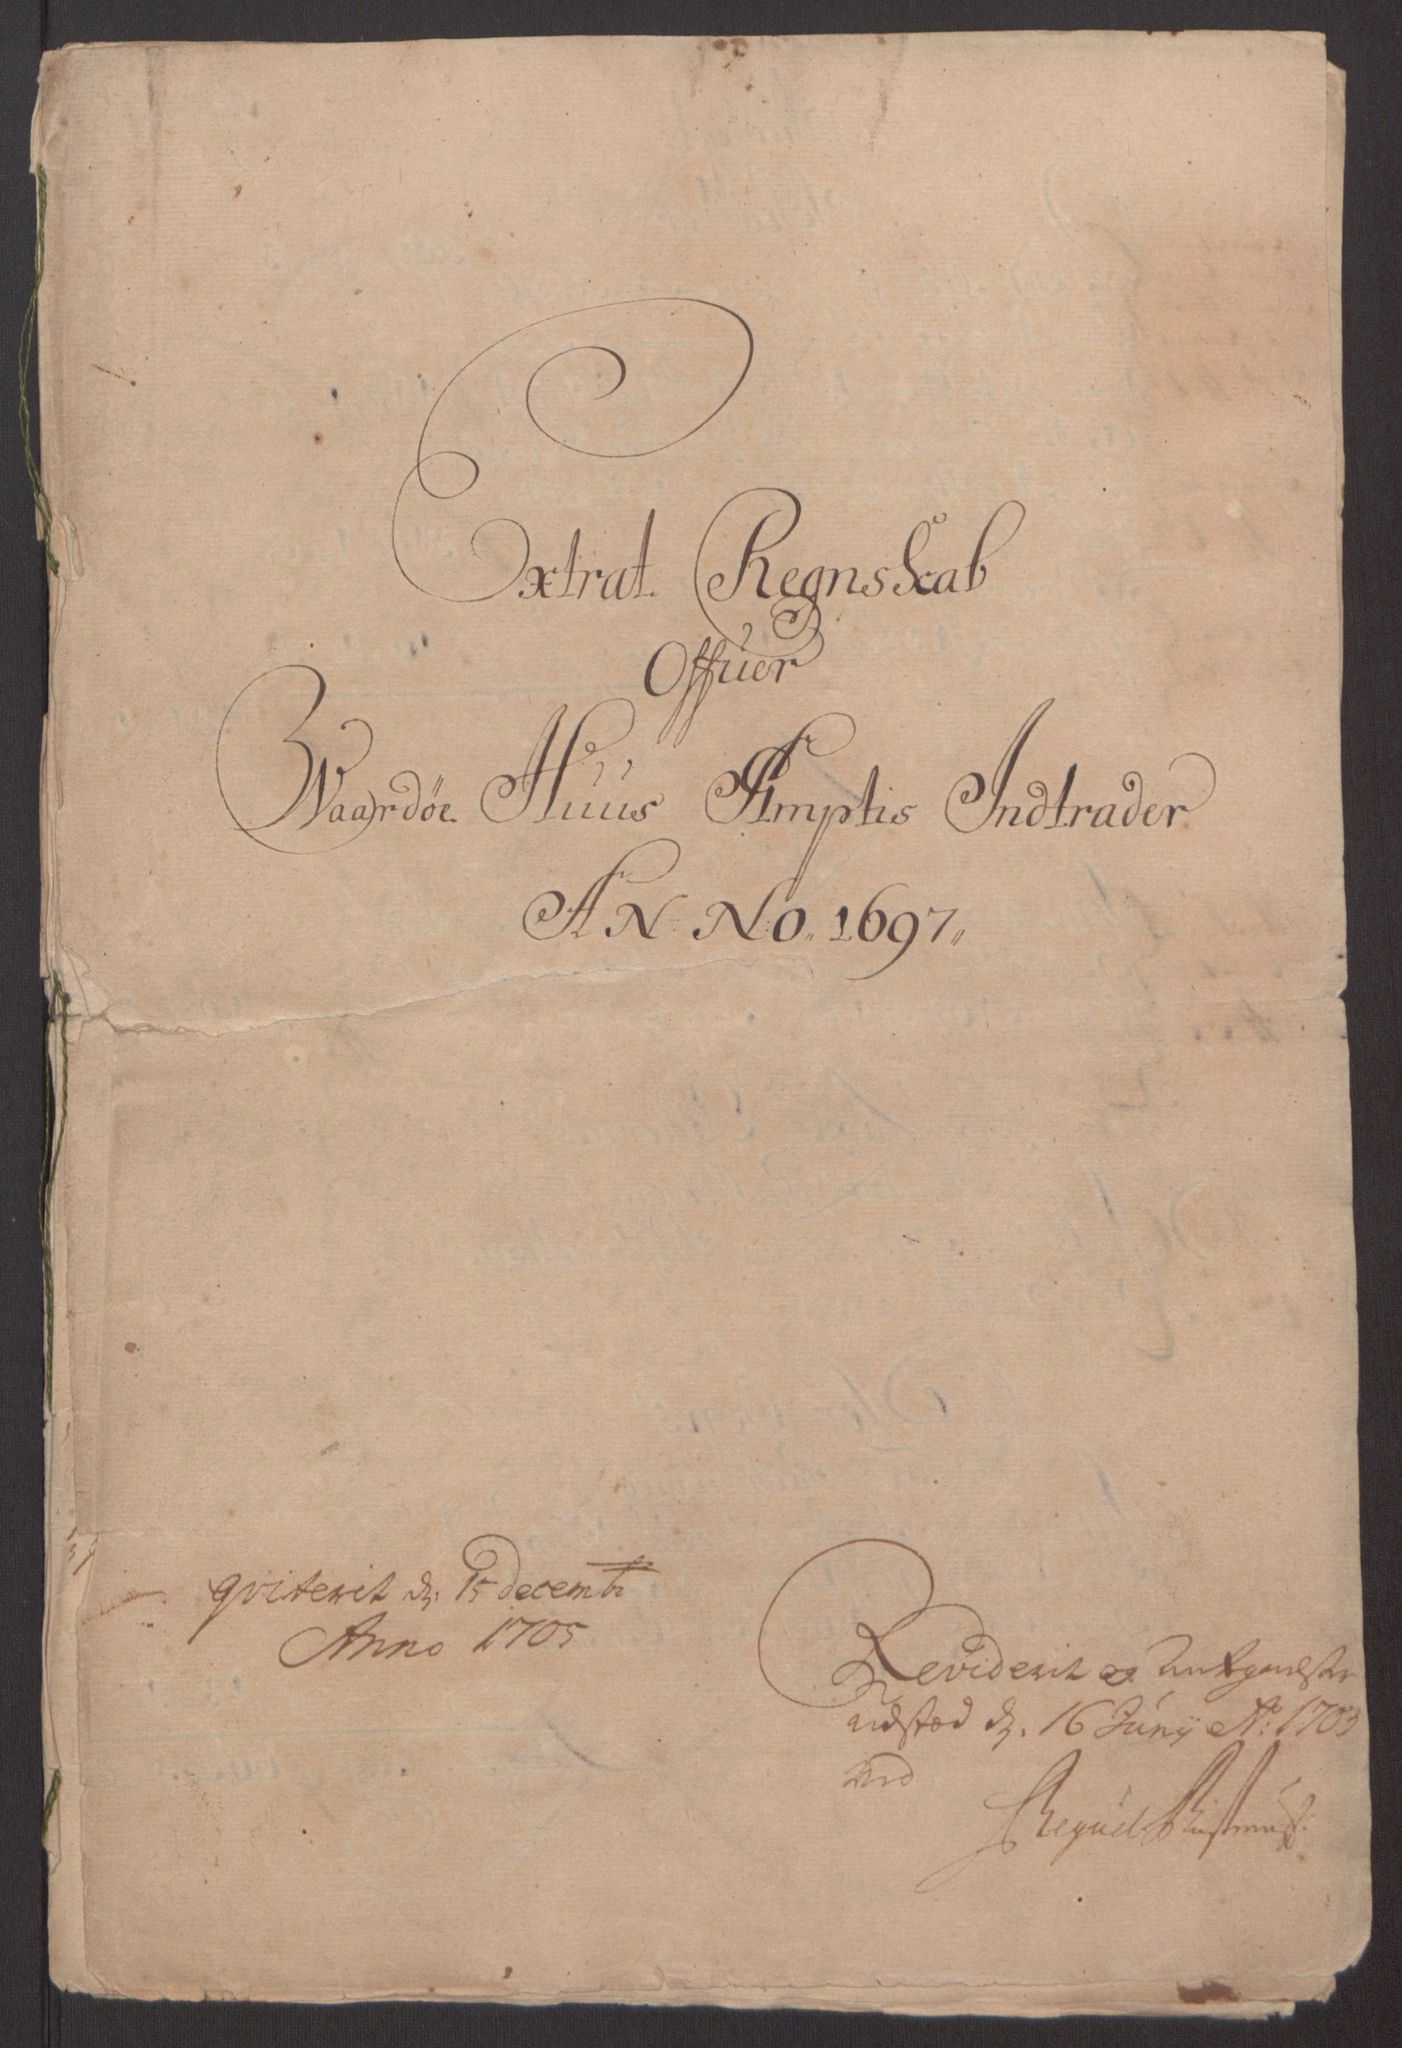 Extrat. Regnskab
Offuer
Waardøe Huus Amptis Indtrader
AN NO. 1697
qviterit d: 15 decemb
Anno 1705
Reviderit og
udstæd d. 16 Juny Ao: 1703